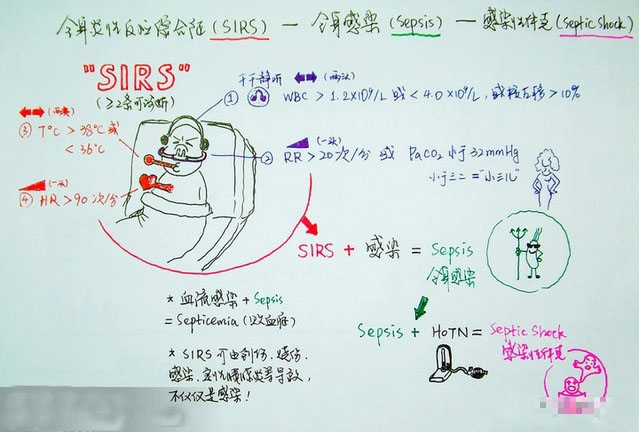 全身炎性反应综合征(SIRS) — 全身感染(Sepsis) — 感染性休克(Septic Shock)
"SIRS"
(≥2条可诊断)
干干静听 (两头)
① WBC > 1.2×10⁹/L 或 < 4.0×10⁹/L, 或核左移 > 10%
(两头)
③ T°C > 38°C 或
< 36°C
(一头)
② RR > 20次/分 或 PaCO₂ 小于 32mmHg
小于三二 = "小三儿"
(一头)
④ HR > 90次/分
SIRS + 感染 = Sepsis
全身感染
* 血流感染 + Sepsis
= Septicemia (败血症)
Sepsis + HoTN = Septic Shock
感染性休克
* SIRS 可由创伤、烧伤、
感染、急性胰腺炎等导致,
不仅仅是感染!